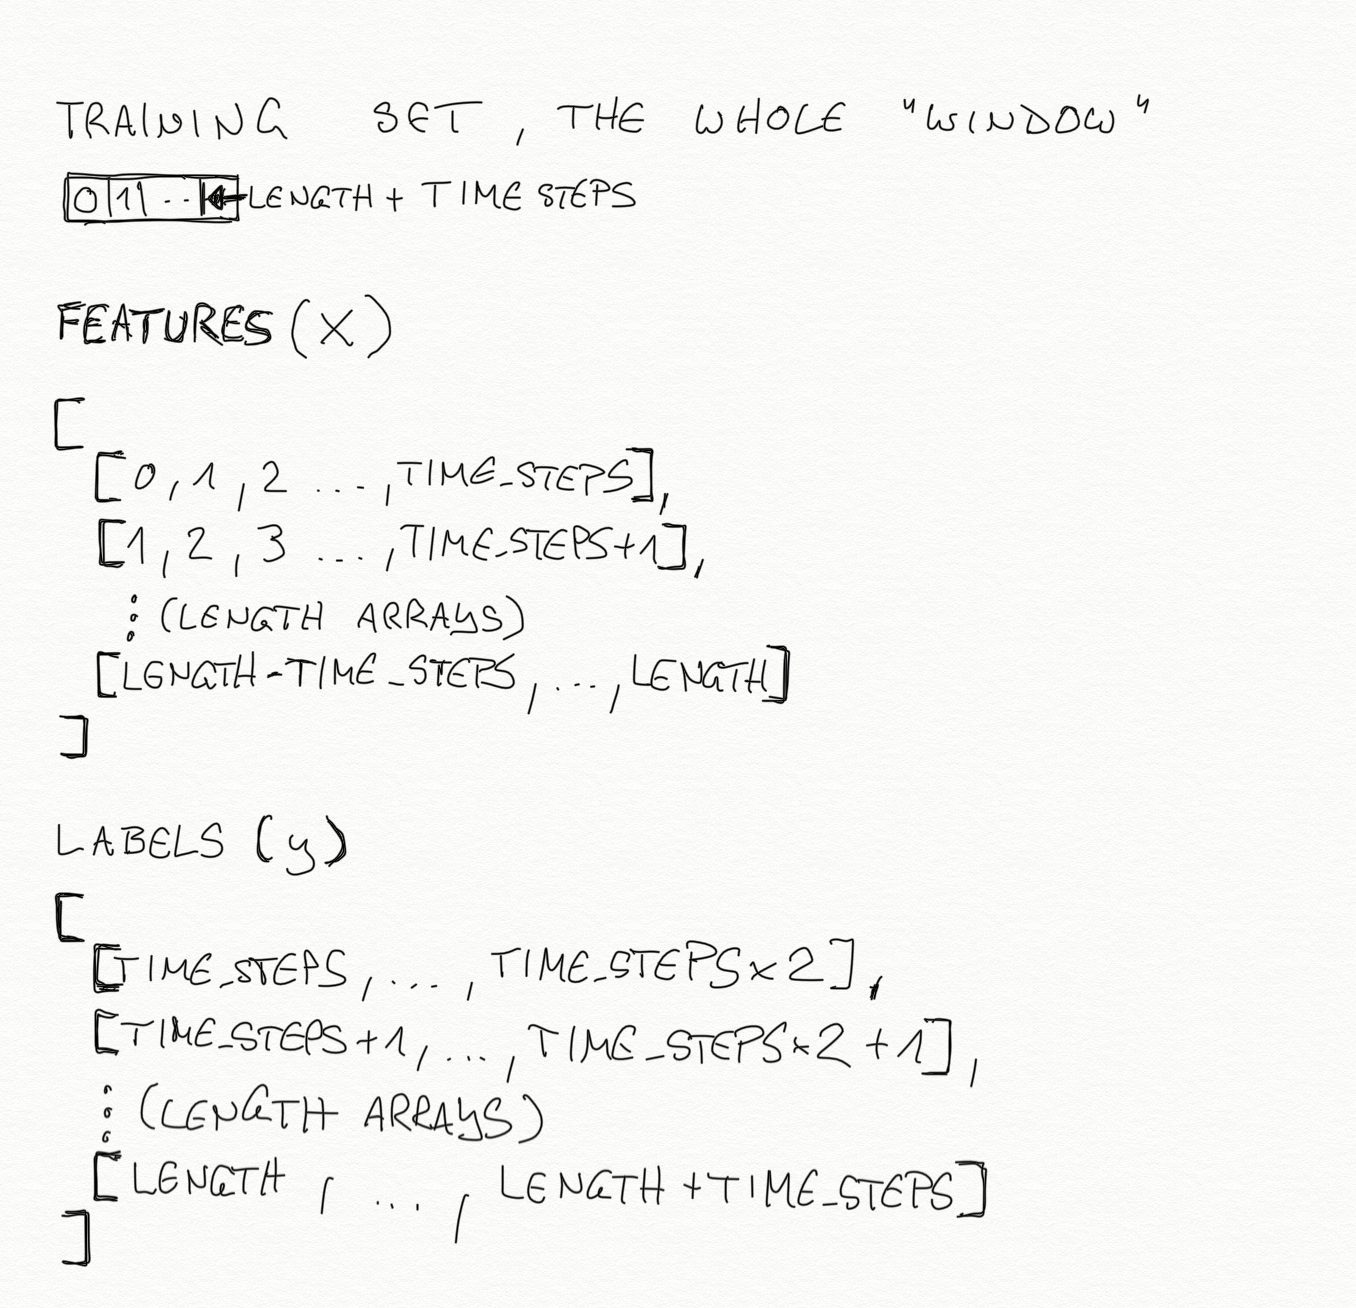 TRAINING SET, THE WHOLE "WINDOW"
0 1 .. LENGTH + TIME STEPS
FEATURES (X)
[
[0, 1, 2 ..., TIME_STEPS],
[1, 2, 3 ..., TIME_STEPS+1],
: (LENGTH ARRAYS)
[LENGTH-TIME_STEPS, ..., LENGTH]
]
LABELS (y)
[
[TIME_STEPS, ..., TIME_STEPS x 2],
[TIME_STEPS+1, ..., TIME_STEPS x 2 + 1],
: (LENGTH ARRAYS)
[LENGTH, ..., LENGTH + TIME_STEPS]
]